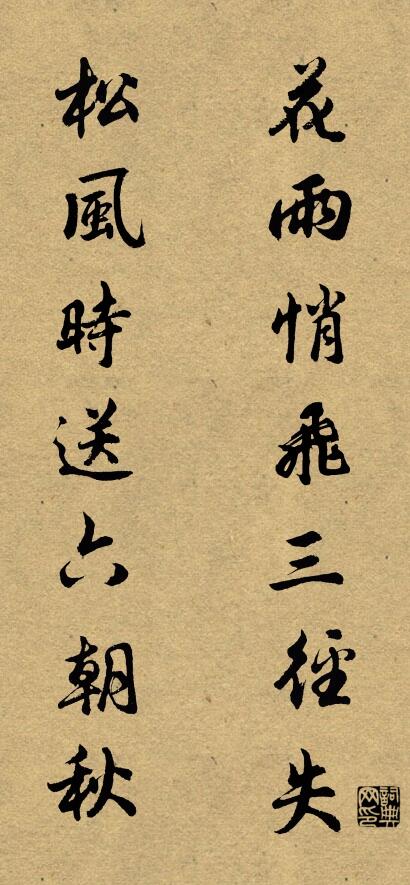 花雨悄飛三徑失
松風時送六朝秋
詞典網印